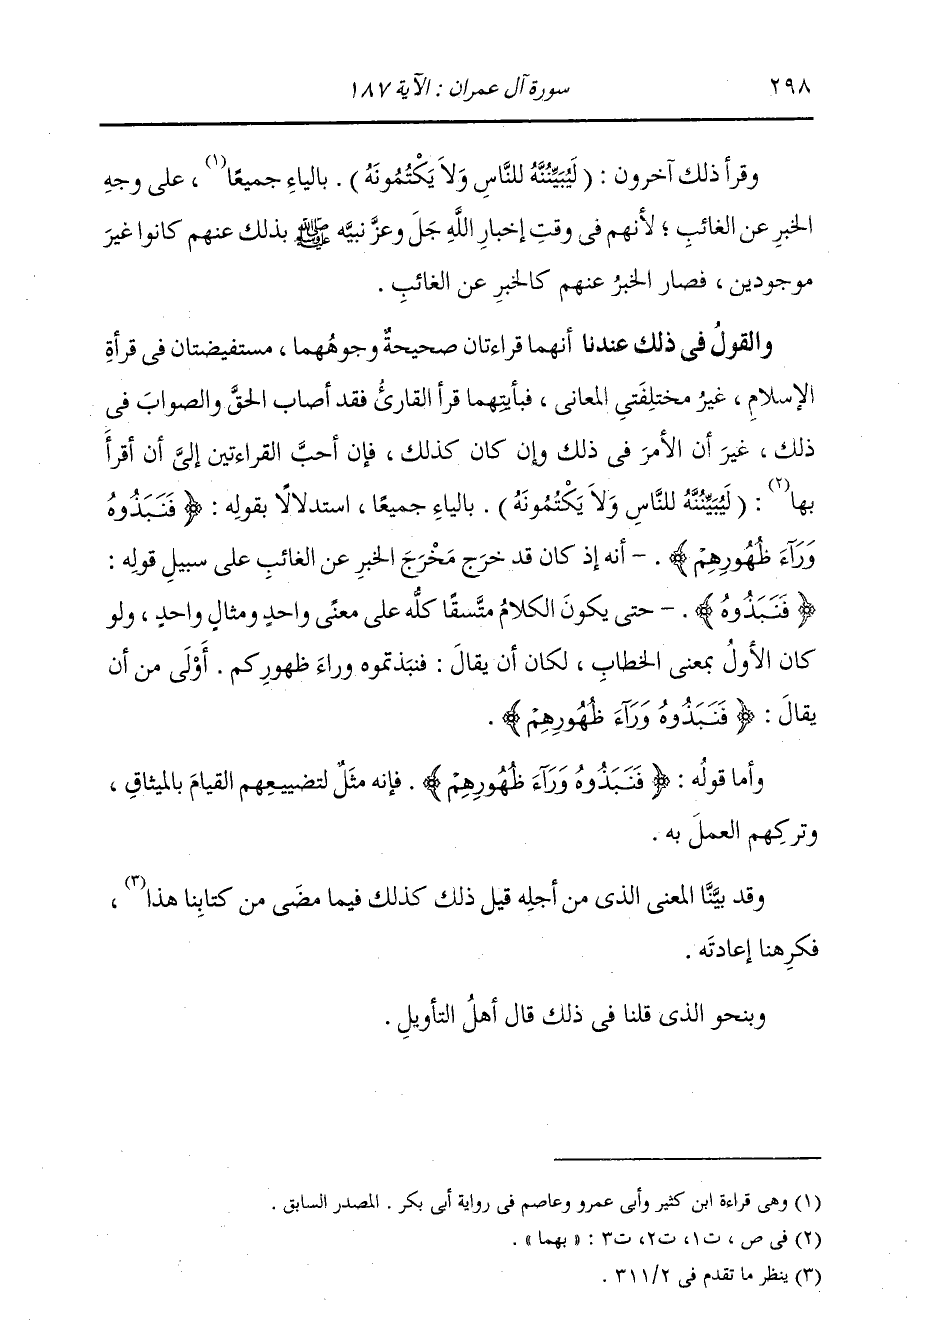 ٢٩٨
سورة آل عمران : الآية ١٨٧
وقرأ ذلك آخرون : ( لَيُبَيِّنُنَّهُ للنَّاسِ وَلاَ يَكْتُمُونَهُ ) . بالياءِ جميعًا(١) ، على وجهِ
الخبرِ عن الغائبِ ؛ لأنهم فى وقتِ إخبارِ اللَّهِ جَلَّ وعزَّ نبيَّه ﷺ بذلك عنهم كانوا غيرَ
موجودين ، فصار الخبرُ عنهم كالخبرِ عن الغائبِ .
والقولُ فى ذلك عندنا أنهما قراءتان صحيحةٌ وجوهُهما ، مستفيضتان فى قرأةِ
الإسلامِ ، غيرُ مختلِفَتىِ المعانى ، فبأيتِهما قرأ القارئُ فقد أصاب الحقَّ والصوابَ فى
ذلك ، غيرَ أن الأمرَ فى ذلك وإن كان كذلك ، فإن أحبَّ القراءتين إلىَّ أن أقرأَ
بها(٢) : ( لَيُبَيِّنُنَّهُ للنَّاسِ وَلاَ يَكْتُمُونَهُ ) . بالياءِ جميعًا ، استدلالًا بقولِه : ﴿ فَنَبَذُوهُ
وَرَآءَ ظُهُورِهِمْ ﴾ . – أنه إذ كان قد خرَج مَخْرَجَ الخبرِ عن الغائبِ على سبيلِ قولِه :
﴿ فَنَبَذُوهُ ﴾ . – حتى يكونَ الكلامُ متَّسقًا كلُّه على معنًى واحدٍ ومثالٍ واحدٍ ، ولو
كان الأولُ بمعنى الخطابِ ، لكان أن يقالَ : فنبَذتموه وراءَ ظهورِكم . أَوْلَى من أن
يقالَ : ﴿ فَنَبَذُوهُ وَرَآءَ ظُهُورِهِمْ ﴾ .
وأما قولُه : ﴿ فَنَبَذُوهُ وَرَآءَ ظُهُورِهِمْ ﴾ . فإنه مثَلٌ لتضييعِهم القيامَ بالميثاقِ ،
وتركِهم العملَ به .
وقد بيَّنَّا المعنى الذى من أجلِه قيل ذلك كذلك فيما مضَى من كتابِنا هذا(٣) ،
فكرِهنا إعادتَه .
وبنحو الذى قلنا فى ذلك قال أهلُ التأويلِ .
(١) وهى قراءة ابن كثير وأبى عمرو وعاصم فى رواية أبى بكر . المصدر السابق .
(٢) فى ص ، ت١، ت٢، ت٣ : « بهما » .
(٣) ينظر ما تقدم فى ٣١١/٢ .